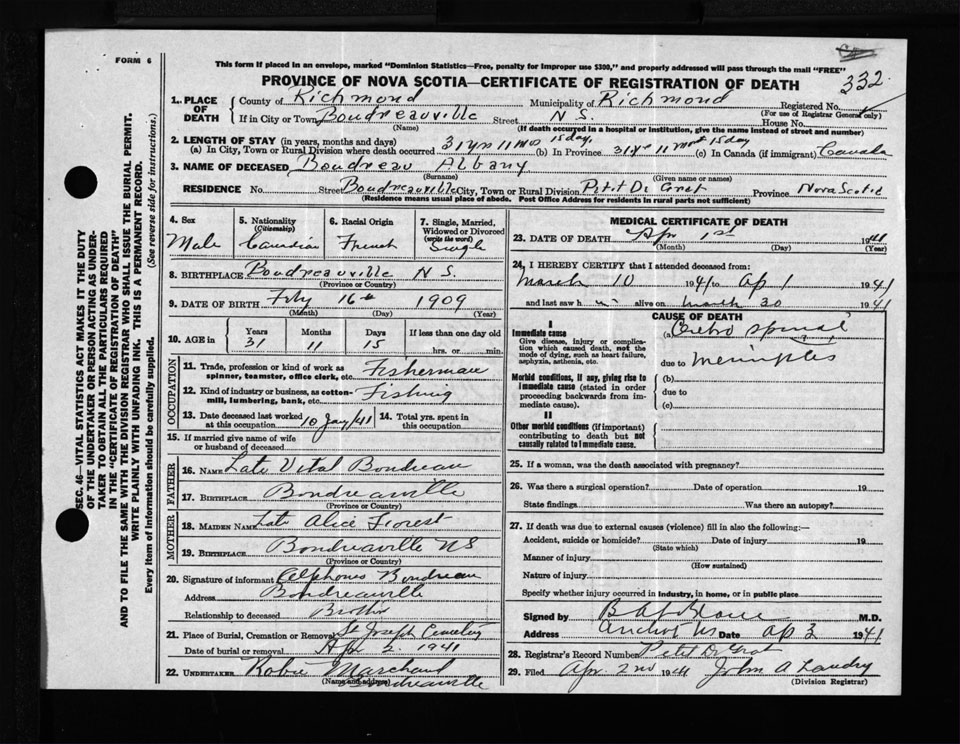 FORM 6
This form if placed in an envelope, marked "Dominion Statistics—Free, penalty for improper use $300," and properly addressed will pass through the mail "FREE"
PROVINCE OF NOVA SCOTIA—CERTIFICATE OF REGISTRATION OF DEATH
332
1. PLACE OF DEATH
County of Richmond Municipality of Richmond Registered No.
(For use of Registrar General only)
If in City or Town Boudreauville Street N S. House No.
(Name) (If death occurred in a hospital or institution, give the name instead of street and number)
2. LENGTH OF STAY (in years, months and days)
(a) In City, Town or Rural Division where death occurred 31 yrs 11 mos 15 day (b) In Province 31 yr 11 mont 15 day (c) In Canada (if immigrant) Canada
3. NAME OF DECEASED Boudreau Albany
(Surname) (Given name or names)
RESIDENCE No. Street Boudreauville City, Town or Rural Division Petit De Grat Province Nova Scotia
(Residence means usual place of abode. Post Office Address for residents in rural parts not sufficient)
4. Sex Male
5. Nationality (Citizenship) Canadian
6. Racial Origin French
7. Single, Married, Widowed or Divorced (write the word) Single
8. BIRTHPLACE Boudreauville N S.
(Province or Country)
9. DATE OF BIRTH 16th 1909
(Month) (Day) (Year)
10. AGE in Years 31 Months 11 Days 15 If less than one day old hrs. or min.
OCCUPATION
11. Trade, profession or kind of work as spinner, teamster, office clerk, etc. Fisherman
12. Kind of industry or business, as cotton-mill, lumbering, bank, etc. Fishing
13. Date deceased last worked at this occupation 10 Jany/41 14. Total yrs. spent in this occupation
15. If married give name of wife or husband of deceased
FATHER
16. NAME Late Vital Boudreau
17. BIRTHPLACE Boudreauville
(Province or Country)
MOTHER
18. MAIDEN NAME Late Alice Forest
19. BIRTHPLACE Boudreauville NS
(Province or Country)
20. Signature of informant Alphonse Boudreau
Address Boudreauville
Relationship to deceased Brother
21. Place of Burial, Cremation or Removal St Joseph Cemetery
Date of burial or removal Apr 2. 1941
22. UNDERTAKER Marchand
(Name and address) Boudreauville
MEDICAL CERTIFICATE OF DEATH
23. DATE OF DEATH Apr 1st 1941
(Month) (Day)
24. I HEREBY CERTIFY that I attended deceased from:
March 10 1941 to Ap 1 1941
and last saw h alive on March 30 1941
CAUSE OF DEATH
I
Immediate cause
Give disease, injury or complication which caused death, not the mode of dying, such as heart failure, asphyxia, asthenia, etc.
(a) Cerebro Spinal
due to Meningitis
Morbid conditions, if any, giving rise to immediate cause (stated in order proceeding backwards from immediate cause).
(b)
due to
(c)
II
Other morbid conditions (if important) contributing to death but not causally related to immediate cause.
25. If a woman, was the death associated with pregnancy?
26. Was there a surgical operation? Date of operation 19
State findings Was there an autopsy?
27. If death was due to external causes (violence) fill in also the following:—
Accident, suicide or homicide? Date of injury 19
(State which)
Manner of injury
(How sustained)
Nature of injury
Specify whether injury occurred in industry, in home, or in public place
Signed by M.D.
Address Arichat NS Date Ap 2 1941
28. Registrar's Record Number Petit De Grat
29. Filed Apr. 2nd 1941 John A Landry
(Division Registrar)
SEC. 46—VITAL STATISTICS ACT MAKES IT THE DUTY
OF THE UNDERTAKER OR PERSON ACTING AS UNDER-
TAKER TO OBTAIN ALL THE PARTICULARS REQUIRED
IN THE "CERTIFICATE OF REGISTRATION OF DEATH"
AND TO FILE THE SAME WITH THE DIVISION REGISTRAR WHO SHALL ISSUE THE BURIAL PERMIT.
WRITE PLAINLY WITH UNFADING INK. THIS IS A PERMANENT RECORD.
Every item of information should be carefully supplied. (See reverse side for instructions.)